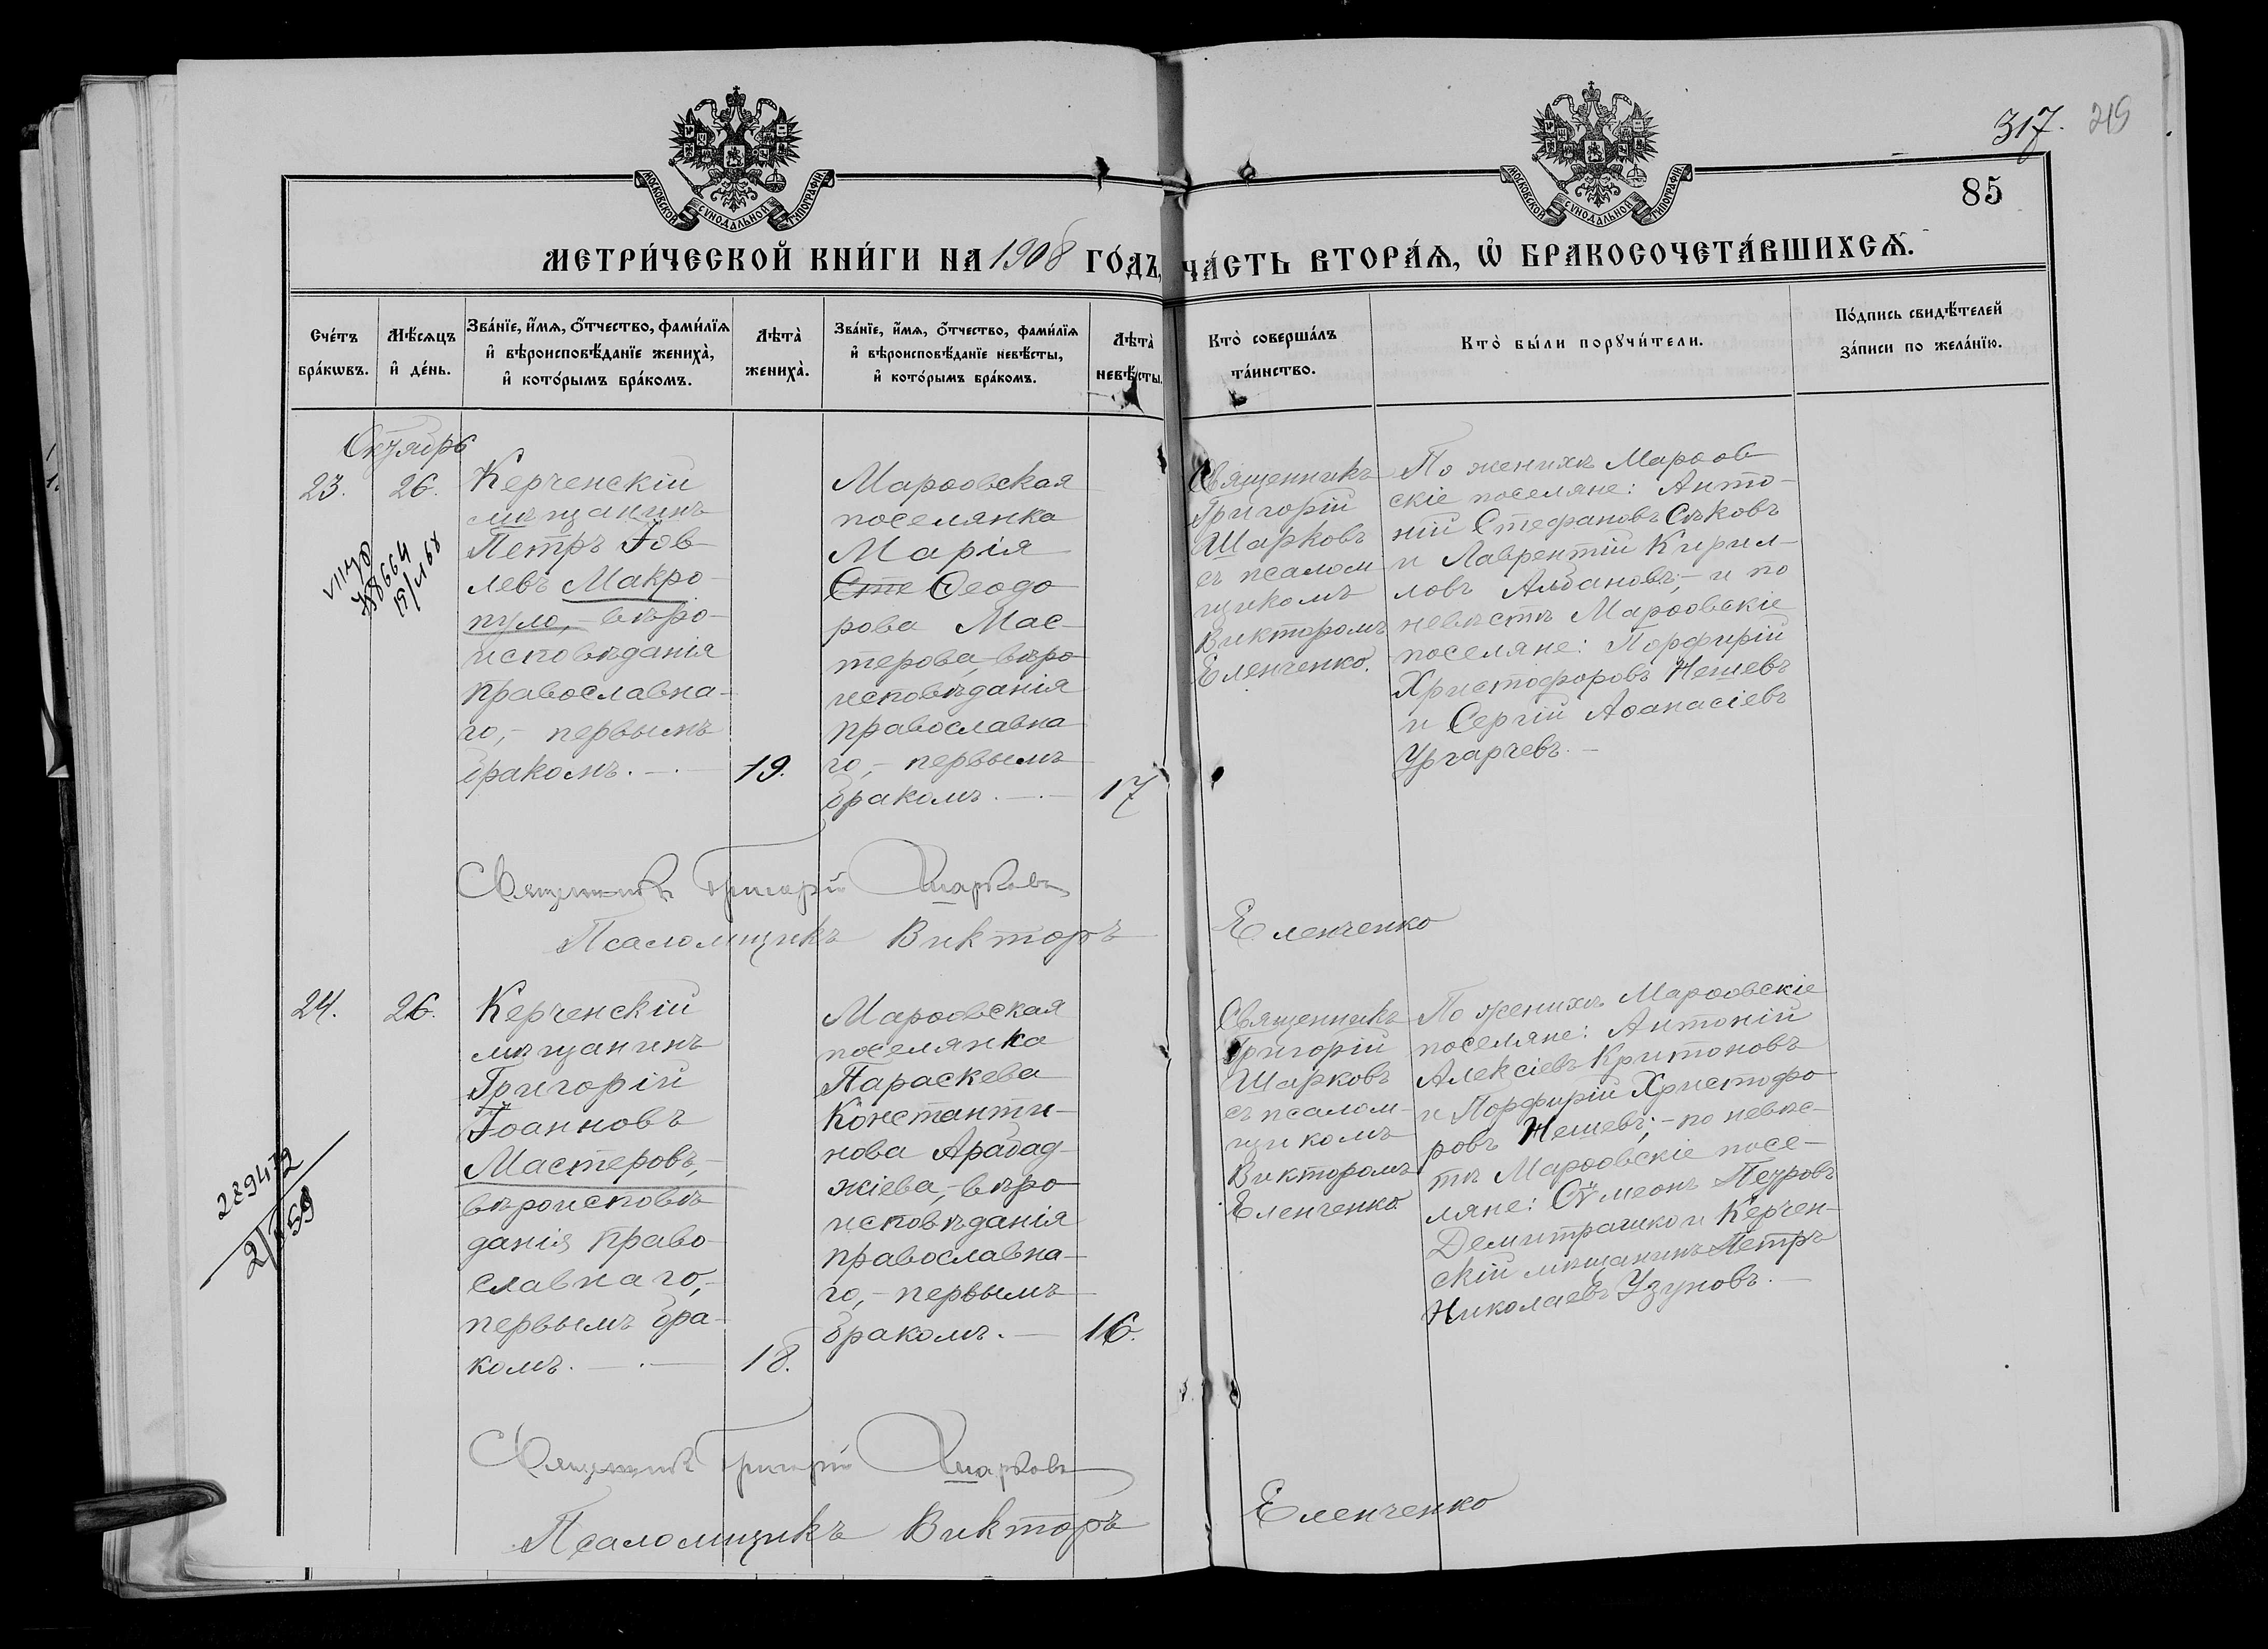 317. 219
МОСКОВСКОЙ СѴНОДАЛЬНОЙ ТИПОГРАФІИ
МОСКОВСКОЙ СѴНОДАЛЬНОЙ ТИПОГРАФІИ
85
МЕТРИ́ЧЕСКОЙ КНИ́ГИ НА 1908 ГО́ДЪ, ЧА́СТЬ ВТОРА́Ѧ, Ѽ БРАКОСОЧЕТА́ВШИХСѦ.
Сче́тъ
бра́кѡвъ.
Мѣ́сяцъ
и҆ де́нь.
Зва́нїе, и҆́мѧ, ѻ҆́тчество, фами́лїѧ
и҆ вѣроисповѣ́данїе жениха̀,
и҆ кото́рымъ бра́комъ.
Лѣта̀
жениха̀.
Зва́нїе, и҆́мѧ, ѻ҆́тчество, фами́лїѧ
и҆ вѣроисповѣ́данїе невѣ́сты,
и҆ кото́рымъ бра́комъ.
Лѣта̀
невѣ́сты.
Кто̀ соверша́лъ
та́инство.
Кто̀ бы́ли порꙋчи́тели.
По́дпись свидѣ́телей
за́писи по жела́нїю.
Октябрь
23.
26.
Керченскій
мѣщанинъ
Петръ Іов-
левъ Макро-
пуло,- вѣро-
исповѣданія
православна-
го,- первымъ
бракомъ.
19.
Марѳовская
поселянка
Марія
Сте Ѳеодо
рова Мас-
терова,-вѣро
исповѣданія
православна
го,- первымъ
бракомъ.
17
Священникъ
Григорій
Шарковъ
съ псалом-
щикомъ
Викторомъ
Еленченко.
По женихѣ Марѳов
скіе поселяне: Анто-
ній Стефановъ Сѣковъ
и Лаврентій Кирил-
ловъ Албановъ;- и по
невѣстѣ Марѳовскіе
поселяне: Порфирій
Христофоровъ Нешевъ
и Сергій Аѳанасіевъ
Ургарчевъ.-
Священникъ Григорій Шарковъ
Псаломщикъ Викторъ Еленченко
24.
26.
Керченскій
мѣщанинъ
Григорій
Іоанновъ
Мастеровъ,-
вѣроисповѣ
данія право
славнаго,-
первымъ бра-
комъ.
18.
Марѳовская
поселянка
Параскева
Константи-
нова Арабад-
жіева,-вѣро
исповѣданія
православна-
го,- первымъ
бракомъ.
16.
Священникъ
Григорій
Шарковъ
съ псалом-
щикомъ
Викторомъ
Еленченко.
По женихѣ Марѳовскіе
поселяне: Антоній
Алексіевъ Критоновъ
и Порфирій Христофо-
ровъ Нешевъ;- по невѣс-
тѣ Марѳовскіе посе-
ляне: Сѵмеонъ Петровъ
Демитрашко и Керчен-
скій мѣщанинъ Петръ
Николаевъ Узуновъ.-
Священникъ Григорій Шарковъ
Псаломщикъ Викторъ Еленченко